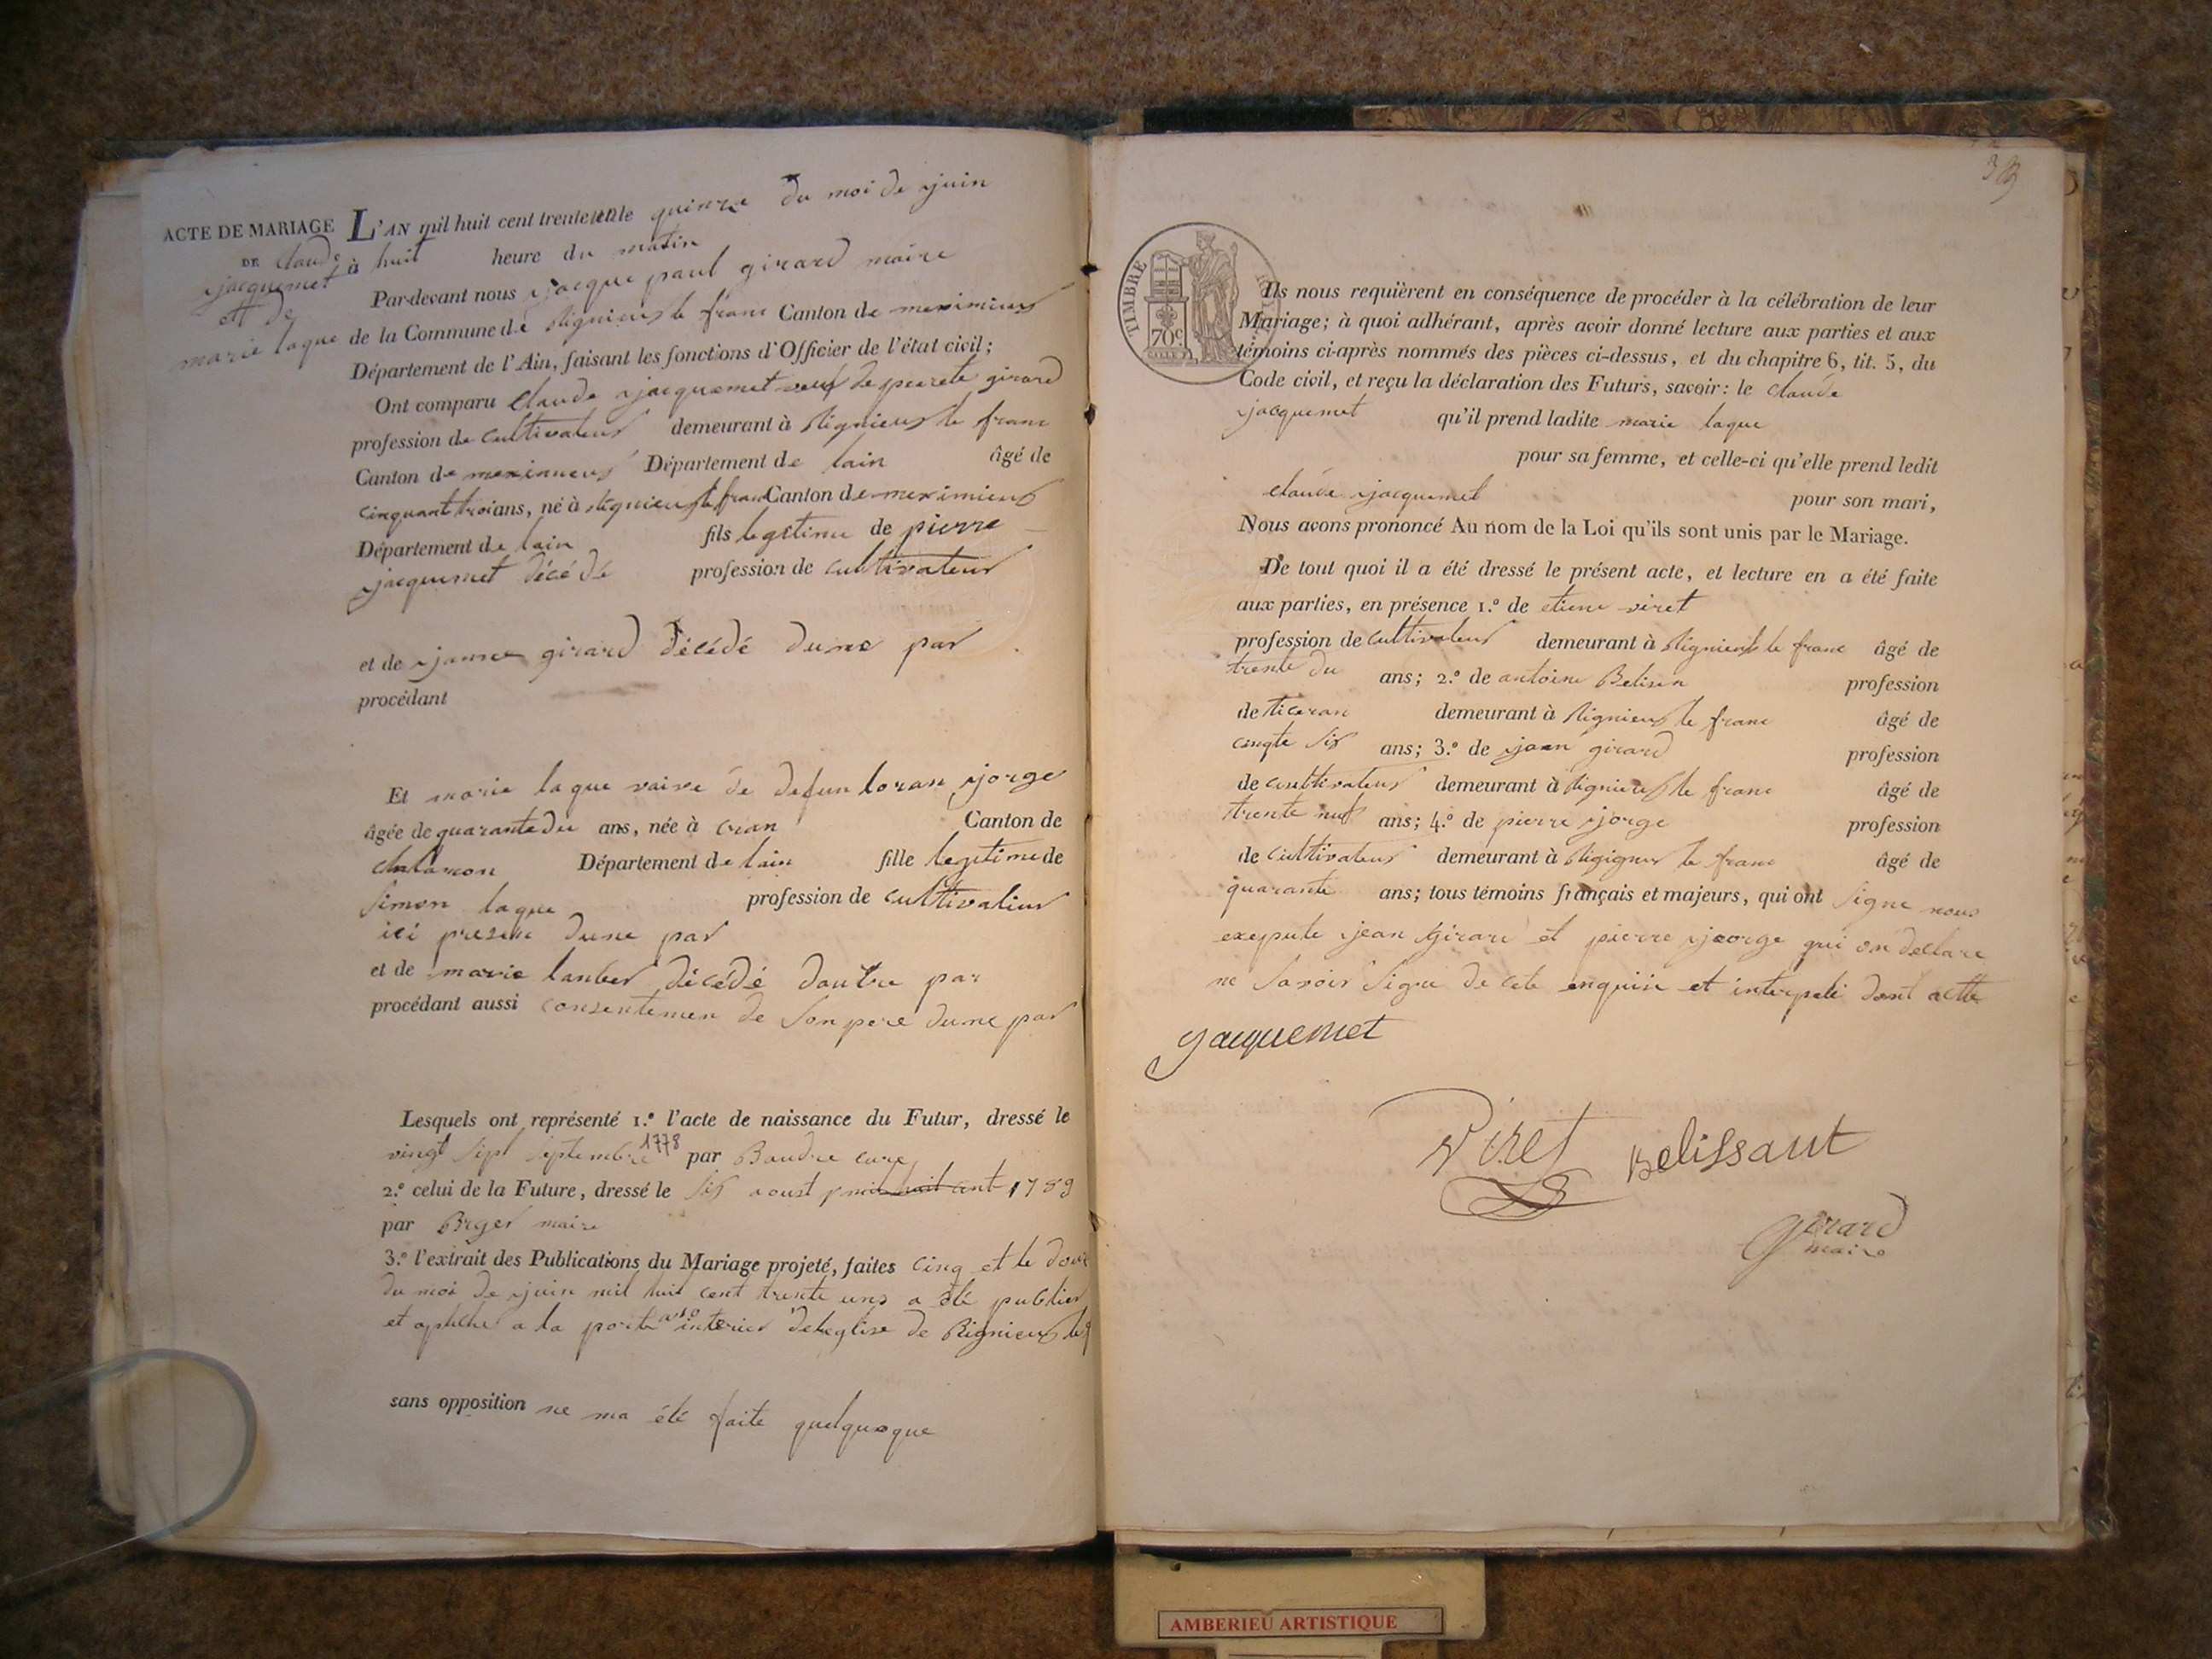 ACTE DE MARIAGE
DE Claude
jacquemet
et de
marie laque
L'AN mil huit cent trente un le quinze du moi de juin
à huit heure du matin
Par-devant nous jacque paul girard maire
de la Commune de Rignieux le franc Canton de meximieux
Département de l'Ain, faisant les fonctions d'Officier de l'état civil;
Ont comparu Claude jacquemet veuf de girard
profession de cultivateur demeurant à Rignieux le franc
Canton de meximieux Département de lain âgé de
cinquant troi ans, né à Rignieux le franc Canton de meximieux
Département de lain fils legitime de pierre
jacquemet décédé profession de cultivateur
et de janne girard décédé dune par
procédant
Et marie laque vaive de defun loran jorge
âgée de quarante deu ans, née à cran Canton de
Chalamon Département de lain fille legitime de
Simon laque profession de cultivateur
ici presen dune par
et de marie lanber décédé dautre par
procédant aussi consentemen de Son pere dune par
Lesquels ont représenté 1.° l'acte de naissance du Futur, dressé le
vingt Sept Septembre 1778 par Baudre cure
2.° celui de la Future, dressé le Six aoust mil huit cent 1789
par Biger maire
3.° l'extrait des Publications du Mariage projeté, faites cinq et le douz
du moi de juin mil huit cent trente uns a été publier
et apliche a la porte interieu deleglise de Rignieux le f
sans opposition ne ma été faite quelquoque
TIMBRE
70c
Ils nous requièrent en conséquence de procéder à la célébration de leur
Mariage; à quoi adhérant, après avoir donné lecture aux parties et aux
témoins ci-après nommés des pièces ci-dessus, et du chapitre 6, tit. 5, du
Code civil, et reçu la déclaration des Futurs, savoir: le claude
jacquemet qu'il prend ladite marie laque
pour sa femme, et celle-ci qu'elle prend ledit
claude jacquemet pour son mari,
Nous avons prononcé Au nom de la Loi qu'ils sont unis par le Mariage.
De tout quoi il a été dressé le présent acte, et lecture en a été faite
aux parties, en présence 1.° de etiene viret
profession de cultivateur demeurant à Rignieux le franc âgé de
trente du ans; 2.° de antoine Belisen profession
de ticeran demeurant à Rignieux le franc âgé de
cinqte Six ans; 3.° de jean girard profession
de cultivateur demeurant à Rignieux le franc âgé de
trente neuf ans; 4.° de pierre jorge profession
de cultivateur demeurant à Rigigneu le franc âgé de
quarante ans; tous témoins français et majeurs, qui ont Signe nous
exepute jean girard et pierre jeorge qui on declare
ne Savoir Signe de cete enquise et interpelé dont actte
Jacquemet
Viret Belissant
girard
maire
AMBERIEU ARTISTIQUE